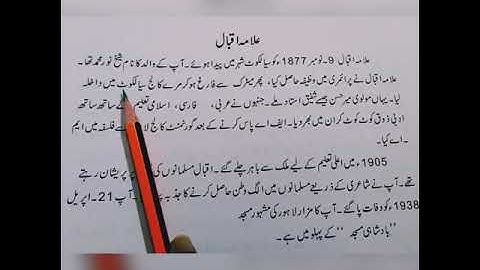 علامہ اقبال
علامہ اقبال 9۔نومبر 1877ء کو سیالکوٹ شہر میں پیدا ہوئے۔ آپ کے والد کا نام شیخ نور محمد تھا۔
علامہ اقبال نے پرائمری میں وظیفہ حاصل کیا، پھر میٹرک سے فارغ ہو کر مرے کالج سیالکوٹ میں داخلہ
لیا۔ یہاں مولوی میر حسن جیسے شفیق استاد ملے۔ جنہوں نے عربی، فارسی، اسلامی تعلیم کے ساتھ ساتھ
ادبی ذوق کوٹ کوٹ کر ان میں بھر دیا۔ ایف اے پاس کرنے کے بعد گورنمنٹ کالج سے فلسفہ میں ایم
۔اے کیا۔
1905ء میں اعلیٰ تعلیم کے لیے ملک سے باہر چلے گئے۔ اقبال مسلمانوں کی پر پریشان رہتے
تھے۔ آپ نے شاعری کے ذریعے مسلمانوں میں الگ وطن حاصل کرنے کا جذبہ آپ 21۔اپریل
1938ء کو وفات پا گئے۔ آپ کا مزار لاہور کی مشہور مسجد
”بادشاہی مسجد“ کے پہلو میں ہے۔